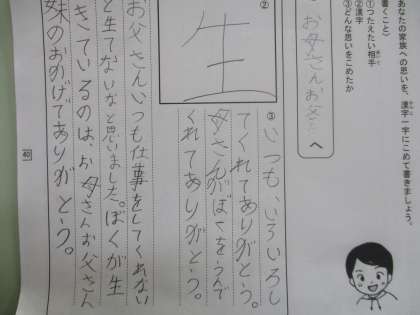 あなたの家族への思いを、漢字一字にこめて書きましょう。
書くこと〉
①つたえたい相手
②漢字
③どんな思いをこめたか
お母さんお父さんへ
②
生
③
いつも、いろいろし
てくれてありがとう。
母さんがぼくをうんで
くれてありがとう。
お父さんいつも仕事をしてくれない
と生てないなと思いました。ぼくが生
きているのは、お母さんお父さん
妹のおかげでありがとう。
40